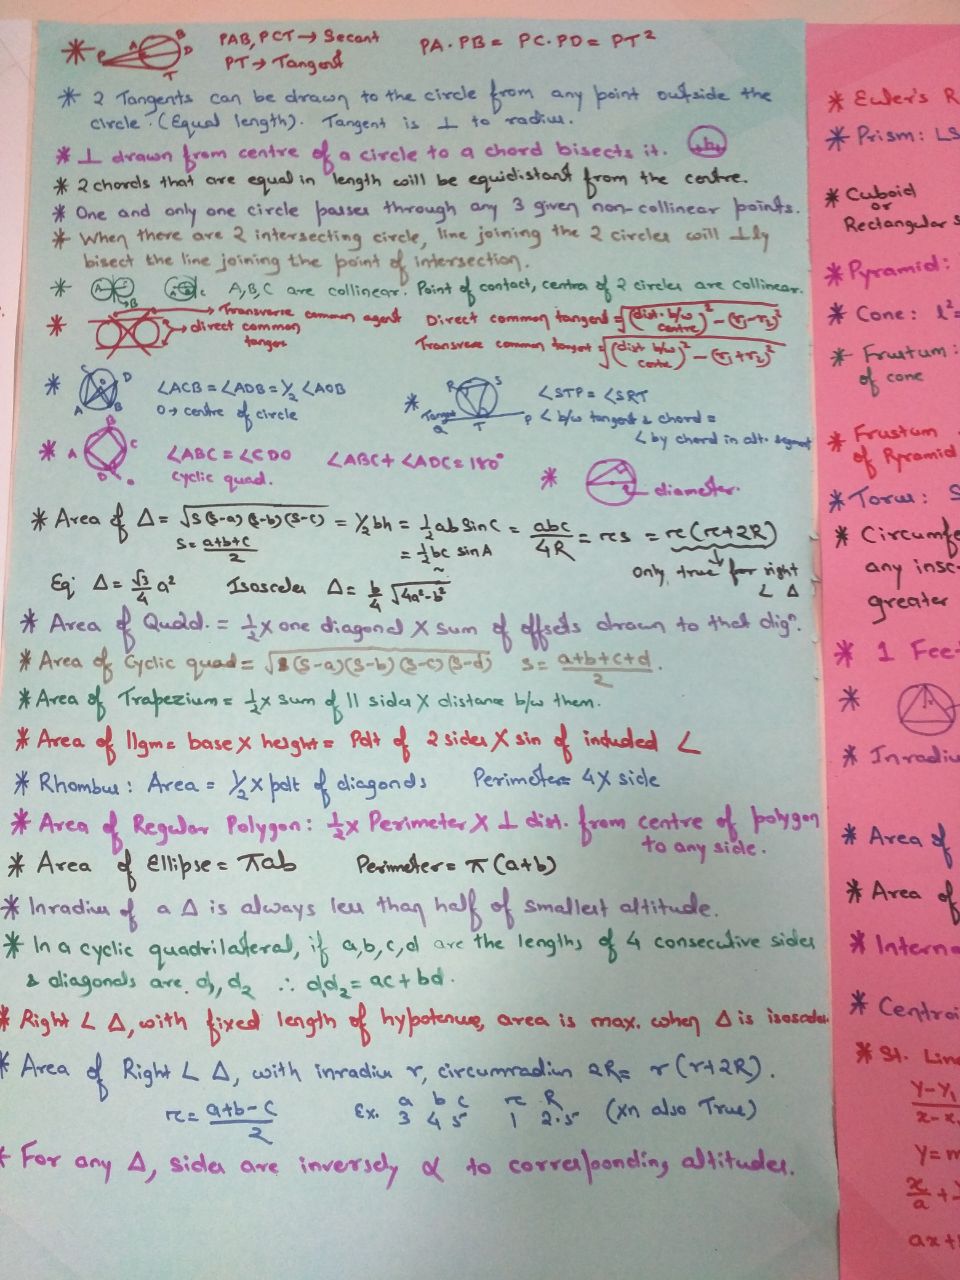 * P A B D T PAB, PCT → Secant PA·PB = PC·PD = PT²
PT → Tangent
* 2 Tangents can be drawn to the circle from any point outside the
circle. (Equal length). Tangent is ⊥ to radius.
* ⊥ drawn from centre of a circle to a chord bisects it.
* 2 chords that are equal in length will be equidistant from the centre.
* One and only one circle passes through any 3 given non-collinear points.
* When there are 2 intersecting circle, line joining the 2 circles will ⊥ly
bisect the line joining the point of intersection.
* A B C A, B, C are collinear. Point of contact, centra of 2 circles are collinear.
* → Transverse common agent Direct common tangent = √((dist. b/w centre)² - (r₁-r₂)²)
→ direct common tangen Transverse common tangent = √((dist b/w centre)² - (r₁+r₂)²)
* C D A B ∠ACB = ∠ADB = ½ ∠AOB
O → centre of circle
* R S Tangent Q T P ∠STP = ∠SRT
∠ b/w tangent & chord =
∠ by chord in alt. segment
* A B C D ∠ABC = ∠CDO ∠ABC + ∠ADC = 180°
cyclic quad.
* diameter.
* Area of Δ = √(s(s-a)(s-b)(s-c)) = ½bh = ½ab SinC = abc/4R = rs = r(r+2R)
s = (a+b+c)/2 = ½bc sinA only true for right
Eq Δ = √3/4 a² Isosceles Δ = b/4 √(4a²-b²) ∠ Δ
* Area of Quad. = ½ × one diagonal × sum of offsets drawn to that digⁿ.
* Area of Cyclic quad = √(s(s-a)(s-b)(s-c)(s-d)) s = (a+b+c+d)/2.
* Area of Trapezium = ½ × sum of || sides × distance b/w them.
* Area of ||gm = base × height = Pdt of 2 sides × sin of included ∠
* Rhombus: Area = ½ × pdt of diagonals Perimeter = 4 × side
* Area of Regular Polygon: ½ × Perimeter × ⊥ dist. from centre of polygon
to any side.
* Area of ellipse = πab Perimeter = π(a+b)
* Inradius of a Δ is always less than half of smallest altitude.
* In a cyclic quadrilateral, if a,b,c,d are the lengths of 4 consecutive sides
& diagonals are d₁ d₂ ∴ d₁d₂ = ac + bd.
* Right ∠ Δ, with fixed length of hypotenuse, area is max. when Δ is isosceles
* Area of Right ∠ Δ, with inradius r, circumradius 2R = r(r+2R).
r = (a+b-c)/2 Ex. a b c r R
3 4 5 1 2.5 (xn also True)
* For any Δ, sides are inversely α to corresponding altitudes.
* Euler's R
* Prism: LS
* Cuboid
or
Rectangular S
* Pyramid:
* Cone: l² =
* Frustum:
of cone
* Frustum
of Pyramid
* Torus: S
* Circumfe
any insc-
greater
* 1 Feet
*
* Inradiu
* Area of
* Area of
* Interna
* Centroi
* St. Line
y-y₁
x-x
y = m
x/a + y
ax +